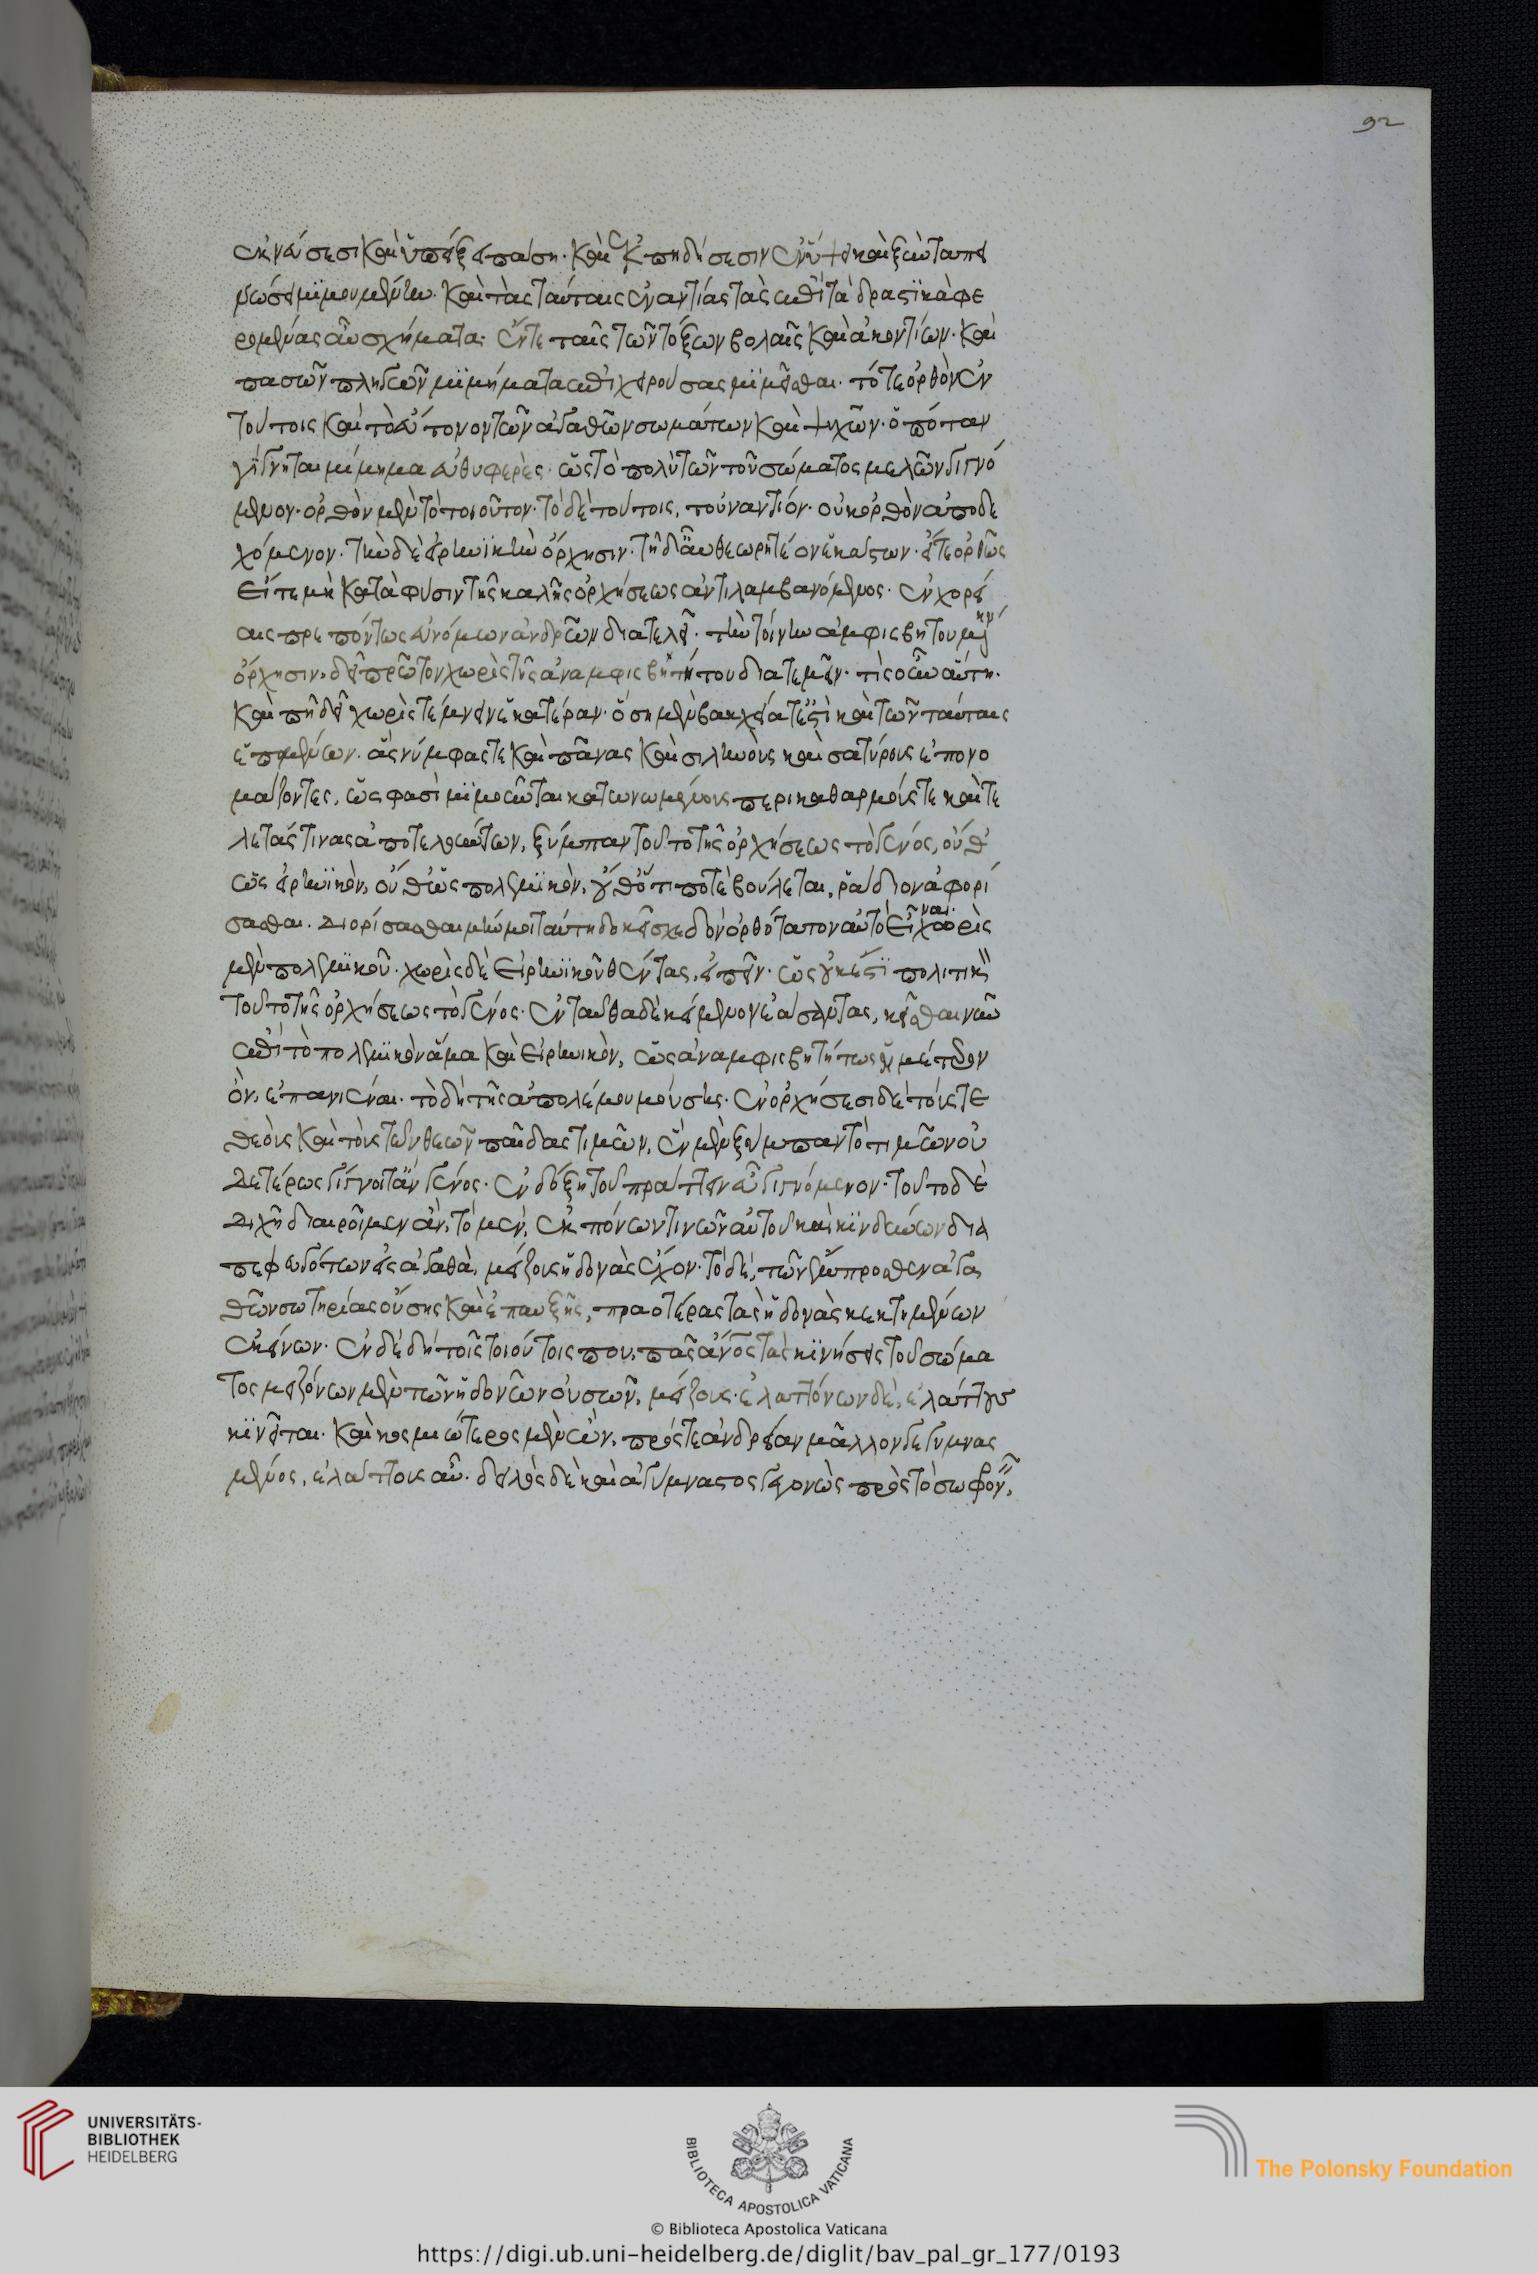 92
ἐκνεύσεσι καὶ ὑπείξει πάσῃ· καὶ ἐκπηδήσεσιν ἐν ὕψει καὶ ξὺν ταπει
νώσει μιμουμένην· καὶ τὰς ταύταις ἐναντίας τὰς ἐπὶ τὰ δραστικὰ φε
ρομένας αὖ σχήματα· ἔν τε ταῖς τῶν τόξων βολαῖς καὶ ἀκοντίων· καὶ
πασῶν πληγῶν μιμήματα ἐπιχειρούσας μιμεῖσθαι· τό τε ὀρθὸν ἐν
τούτοις καὶ τὸ εὔτονον τῶν ἀγαθῶν σωμάτων καὶ ψυχῶν· ὁπόταν
γίγνηται μίμημα εὐθυφερὲς· ὡς τὸ πολὺ τῶν τοῦ σώματος μελῶν γιγνό
μενον· ὀρθὸν μὲν τὸ τοιοῦτον· τὸ δὲ τούτοις, τοὐναντίον· οὐκ ὀρθὸν ἀποδε
χόμενον· τὴν δὲ εἰρηνικὴν ὄρχησιν· τῇδ' αὖ θεωρητέον ἑκάστων· εἴτε ὀρθῶς
εἴτε μὴ κατὰ φύσιν τῆς καλῆς ὀρχήσεως ἀντιλαμβανόμενος· ἐν χορεί
αις πρεπόντως εὐνόμων ἀνδρῶν διατελεῖ· τὴν τοίνυν ἀμφισβητουμένην
ὄρχησιν, δεῖ πρῶτον χωρὶς τῆς ἀναμφισβητήτου διατεμεῖν· τίς οὖν αὕτη·
καὶ πῇ δεῖ χωρὶς τέμνειν ἑκατέραν· ὅση μὲν βακχεία τέ ἐστι καὶ τῶν ταύταις
ἑπομένων· ἃς νύμφας τε καὶ πᾶνας καὶ σιληνοὺς καὶ σατύρους ἐπονο
μάζοντες, ὥς φασὶ μιμοῦνται κατωνωμένους περὶ καθαρμούς τε καὶ τε
λετάς τινας ἀποτελούντων, ξύμπαν τοῦτο τῆς ὀρχήσεως τὸ γένος, οὔθ'
ὡς εἰρηνικὸν, οὔθ' ὡς πολεμικὸν, οὔθ' ὅτι ποτὲ βούλεται, ῥάδιον ἀφορί
σασθαι. διορίσασθαι μὴν μοι ταύτῃ δοκεῖ σχεδὸν ὀρθότατον αὐτὸ εἶναι χωρὶς
μὲν πολεμικοῦ· χωρὶς δὲ εἰρηνικοῦ θέντας, εἰπεῖν· ὡς οὐκ ἔστι πολιτικὸν
τοῦτο τῆς ὀρχήσεως τὸ γένος· ἐνταῦθα δὲ κείμενον ἐάσαντας, κεῖσθαι νῦν
ἐπὶ τὸ πολεμικὸν ἅμα καὶ εἰρηνικὸν, ὡς ἀναμφισβητήτως ἡμέτερον
ὂν, ἐπανιέναι· τὸ δὴ τῆς ἀπολέμου μούσης· ἐν ὀρχήσεσι δὲ τούς τε
θεοὺς καὶ τοὺς τῶν θεῶν παῖδας τιμῶν, ἓν μὲν ξύμπαν τὸ τιμῶν οὐ
δετέρως γίγνοιτ' ἂν γένος· ἐν δόξῃ τοῦ πράττειν εὖ γιγνόμενον· τοῦτο δὲ
διχῇ διαιροῖμεν ἂν, τὸ μὲν, ἐκ πόνων τινῶν αὐτοῦ καὶ κινδύνων δια
πεφευγότων εἰς ἀγαθὰ, μείζους ἡδονὰς ἔχον· τὸ δὲ, τῶν ἔμπροσθεν ἀγα
θῶν σωτηρίας οὔσης καὶ ἐπαυξῆς, πραοτέρας τὰς ἡδονὰς κεκτημένων
ἐκείνων· ἐν δὲ δὴ τοῖς τοιούτοις που, πᾶς ἄνος τὰς κινήσεις τοῦ σώμα
τος μειζόνων μὲν τῶν ἡδονῶν οὐσῶν, μείζους· ἐλαττόνων δὲ, ἐλάττους
κινεῖται· καὶ κοσμιώτερος μὲν ὢν, πρός τε ἀνδρείαν μᾶλλον γεγυμνασ
μένος, ἐλάττους αὖ· δειλὸς δὲ καὶ ἀγύμναστος γεγονὼς πρὸς τὸ σωφρονεῖν,
UNIVERSITÄTS-
BIBLIOTHEK
HEIDELBERG
BIBLIOTECA APOSTOLICA VATICANA
The Polonsky Foundation
© Biblioteca Apostolica Vaticana
https://digi.ub.uni-heidelberg.de/diglit/bav_pal_gr_177/0193